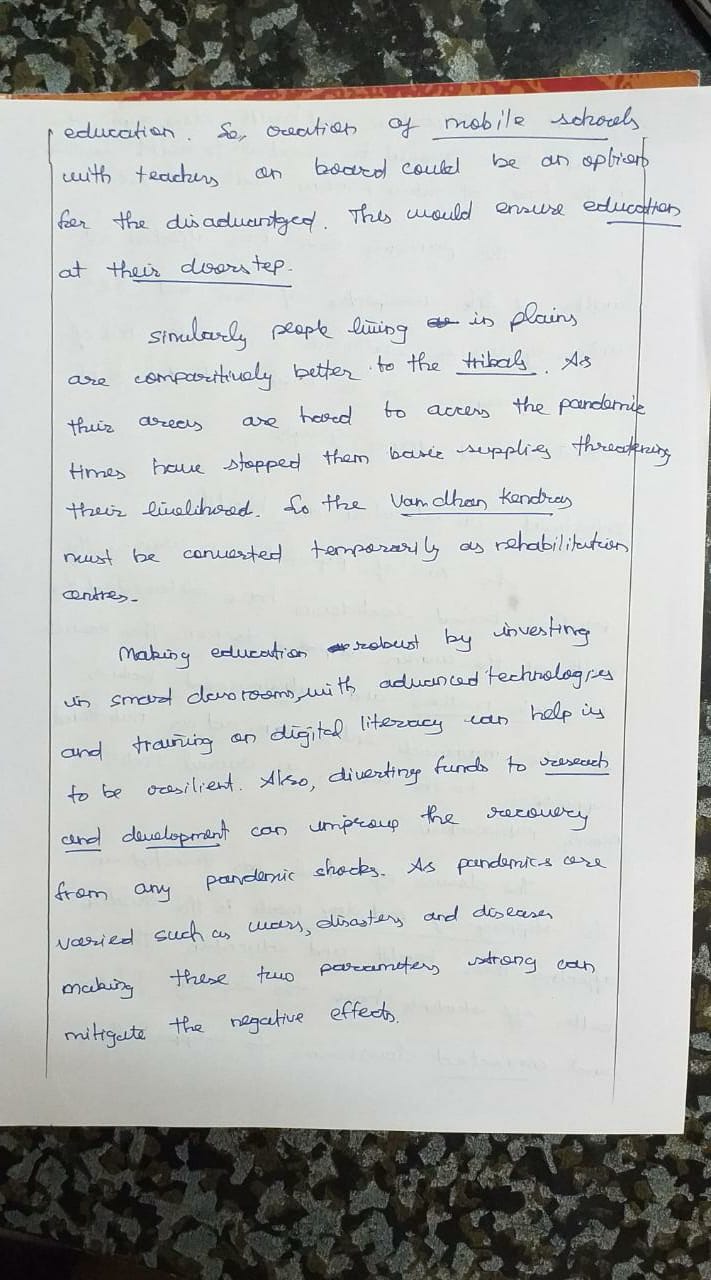 education. So, creation of mobile schools
with teachers on board could be an option
for the disadvantged. This would ensure education
at their doorstep.
Similarly people living in plains
are comparitively better to the tribals. As
their areas are hard to access the pandemic
times have stopped them basic supplies threatening
their livelihood. So the Vandhan Kendras
must be converted temporarily as rehabilitation
centres.
Making education robust by investing
in smart classrooms, with advanced technologies
and training on digital literacy can help us
to be resilient. Also, diverting funds to reseach
and development can improve the recovery
from any pandemic shocks. As pandemics are
varied such as wars, disasters and diseases
making these two parameters strong can
mitigate the negative effects.